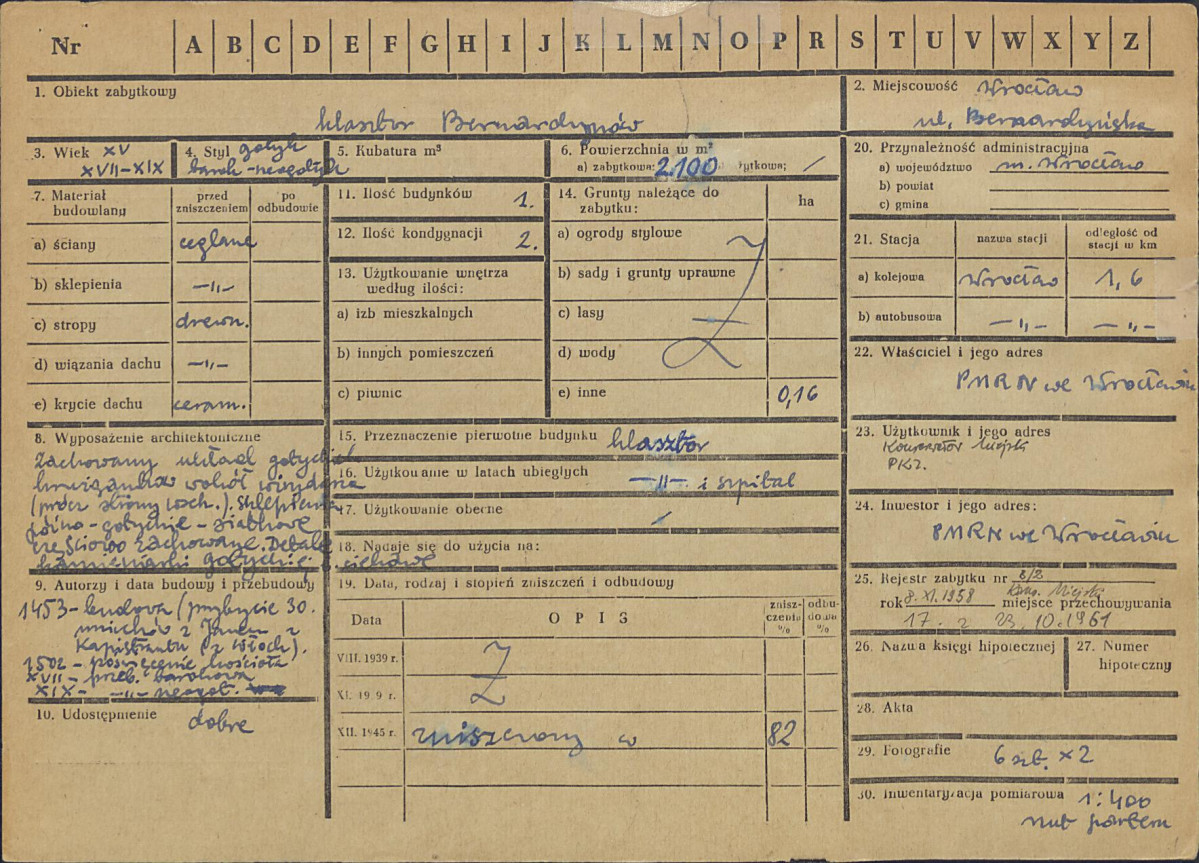 Nr A B C D E F G H I J K L M N O P R S T U V W X Y Z
1. Obiekt zabytkowy
klasztor Bernardynów
2. Miejscowość Wrocław
ul. Bernardyńska
3. Wiek XV
XVII-XIX
4. Styl gotyk
barok-neogotyk
5. Kubatura m³
6. Powierzchnia w m²
a) zabytkowa: 2.100 użytkowa; /
20. Przynależność administracyjna
a) województwo m. Wrocław
b) powiat
c) gmina
7. Materiał budowlany
przed zniszczeniem
po odbudowie
a) ściany ceglane
b) sklepienia —„—
c) stropy drewn.
d) wiązania dachu —„—
e) krycie dachu ceram.
11. Ilość budynków 1.
12. Ilość kondygnacji 2.
13. Użytkowanie wnętrza
według ilości:
a) izb mieszkalnych
b) innych pomieszczeń
c) piwnic
14. Grunty należące do
zabytku:
ha
a) ogrody stylowe
b) sady i grunty uprawne
c) lasy
d) wody
e) inne 0,16
21. Stacja
nazwa stacji
odległość od
stacji w km
a) kolejowa Wrocław 1,6
b) autobusowa —„— —„—
22. Właściciel i jego adres
PMRN we Wrocławiu
23. Użytkownik i jego adres
Konserwator Miejski
PKZ.
24. Inwestor i jego adres:
PMRN we Wrocławiu
8. Wyposażenie architektoniczne
Zachowany układ gotyckich
krużganków wokół wirydarza
(prócz strony wsch.). Sklepienia
późno-gotyckie - siatkowe
częściowo zachowane. Detale
kamieniarki gotyckiej ciekawe
15. Przeznaczenie pierwotne budynku klasztor
16. Użytkowanie w latach ubiegłych —„— i szpital
17. Użytkowanie obecne /
18. Nadaje się do użycia na:
9. Autorzy i data budowy i przebudowy
1453 - budowa (przybycie 30.
mnichów z Janem z
Kapistranu (z Włoch).
1502 - poświęcenie kościoła
XVII - przeb. barokowa
XIX - —„— neogot.
10. Udostępnienie dobre
19. Data, rodzaj i stopień zniszczeń i odbudowy
Data
OPIS
znisz-
czenia
%
odbu-
dowa
%
VIII. 1939 r.
XI. 19 9 r.
XII. 1945 r. zniszczony w 82
25. Rejestr zabytku nr 8/2
rok 8.XI.1958 miejsce przechowywania Kons. Miejski
17. z 23.10.1961
26. Nazwa księgi hipotecznej
27. Numer
hipoteczny
28. Akta
29. Fotografie 6 szt. x2
30. Inwentaryzacja pomiarowa 1:400
rzut parteru